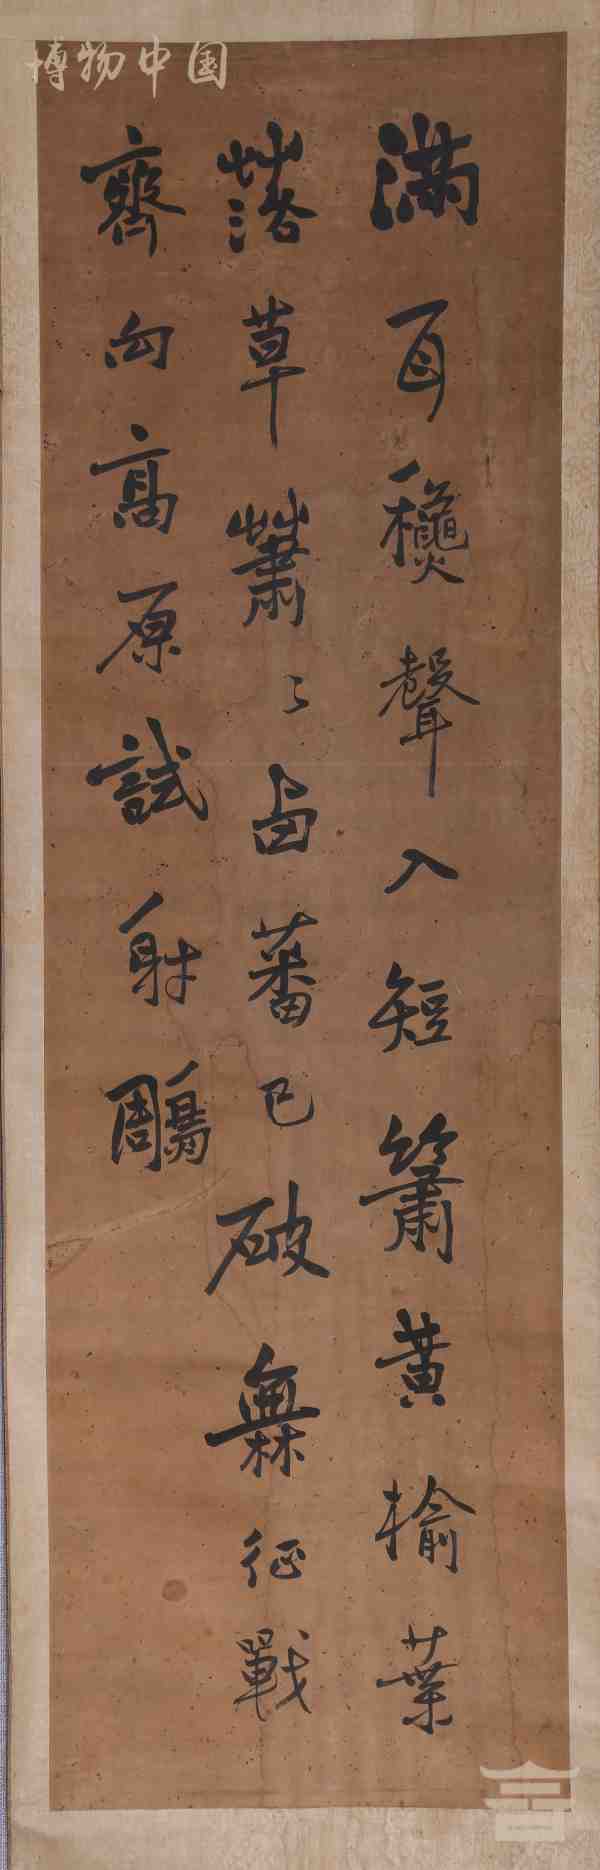 滿耳龝聲入短簫黃榆葉
落草蕭〻西蕃已破無征戰
齊向高原試射鵰
博物中国